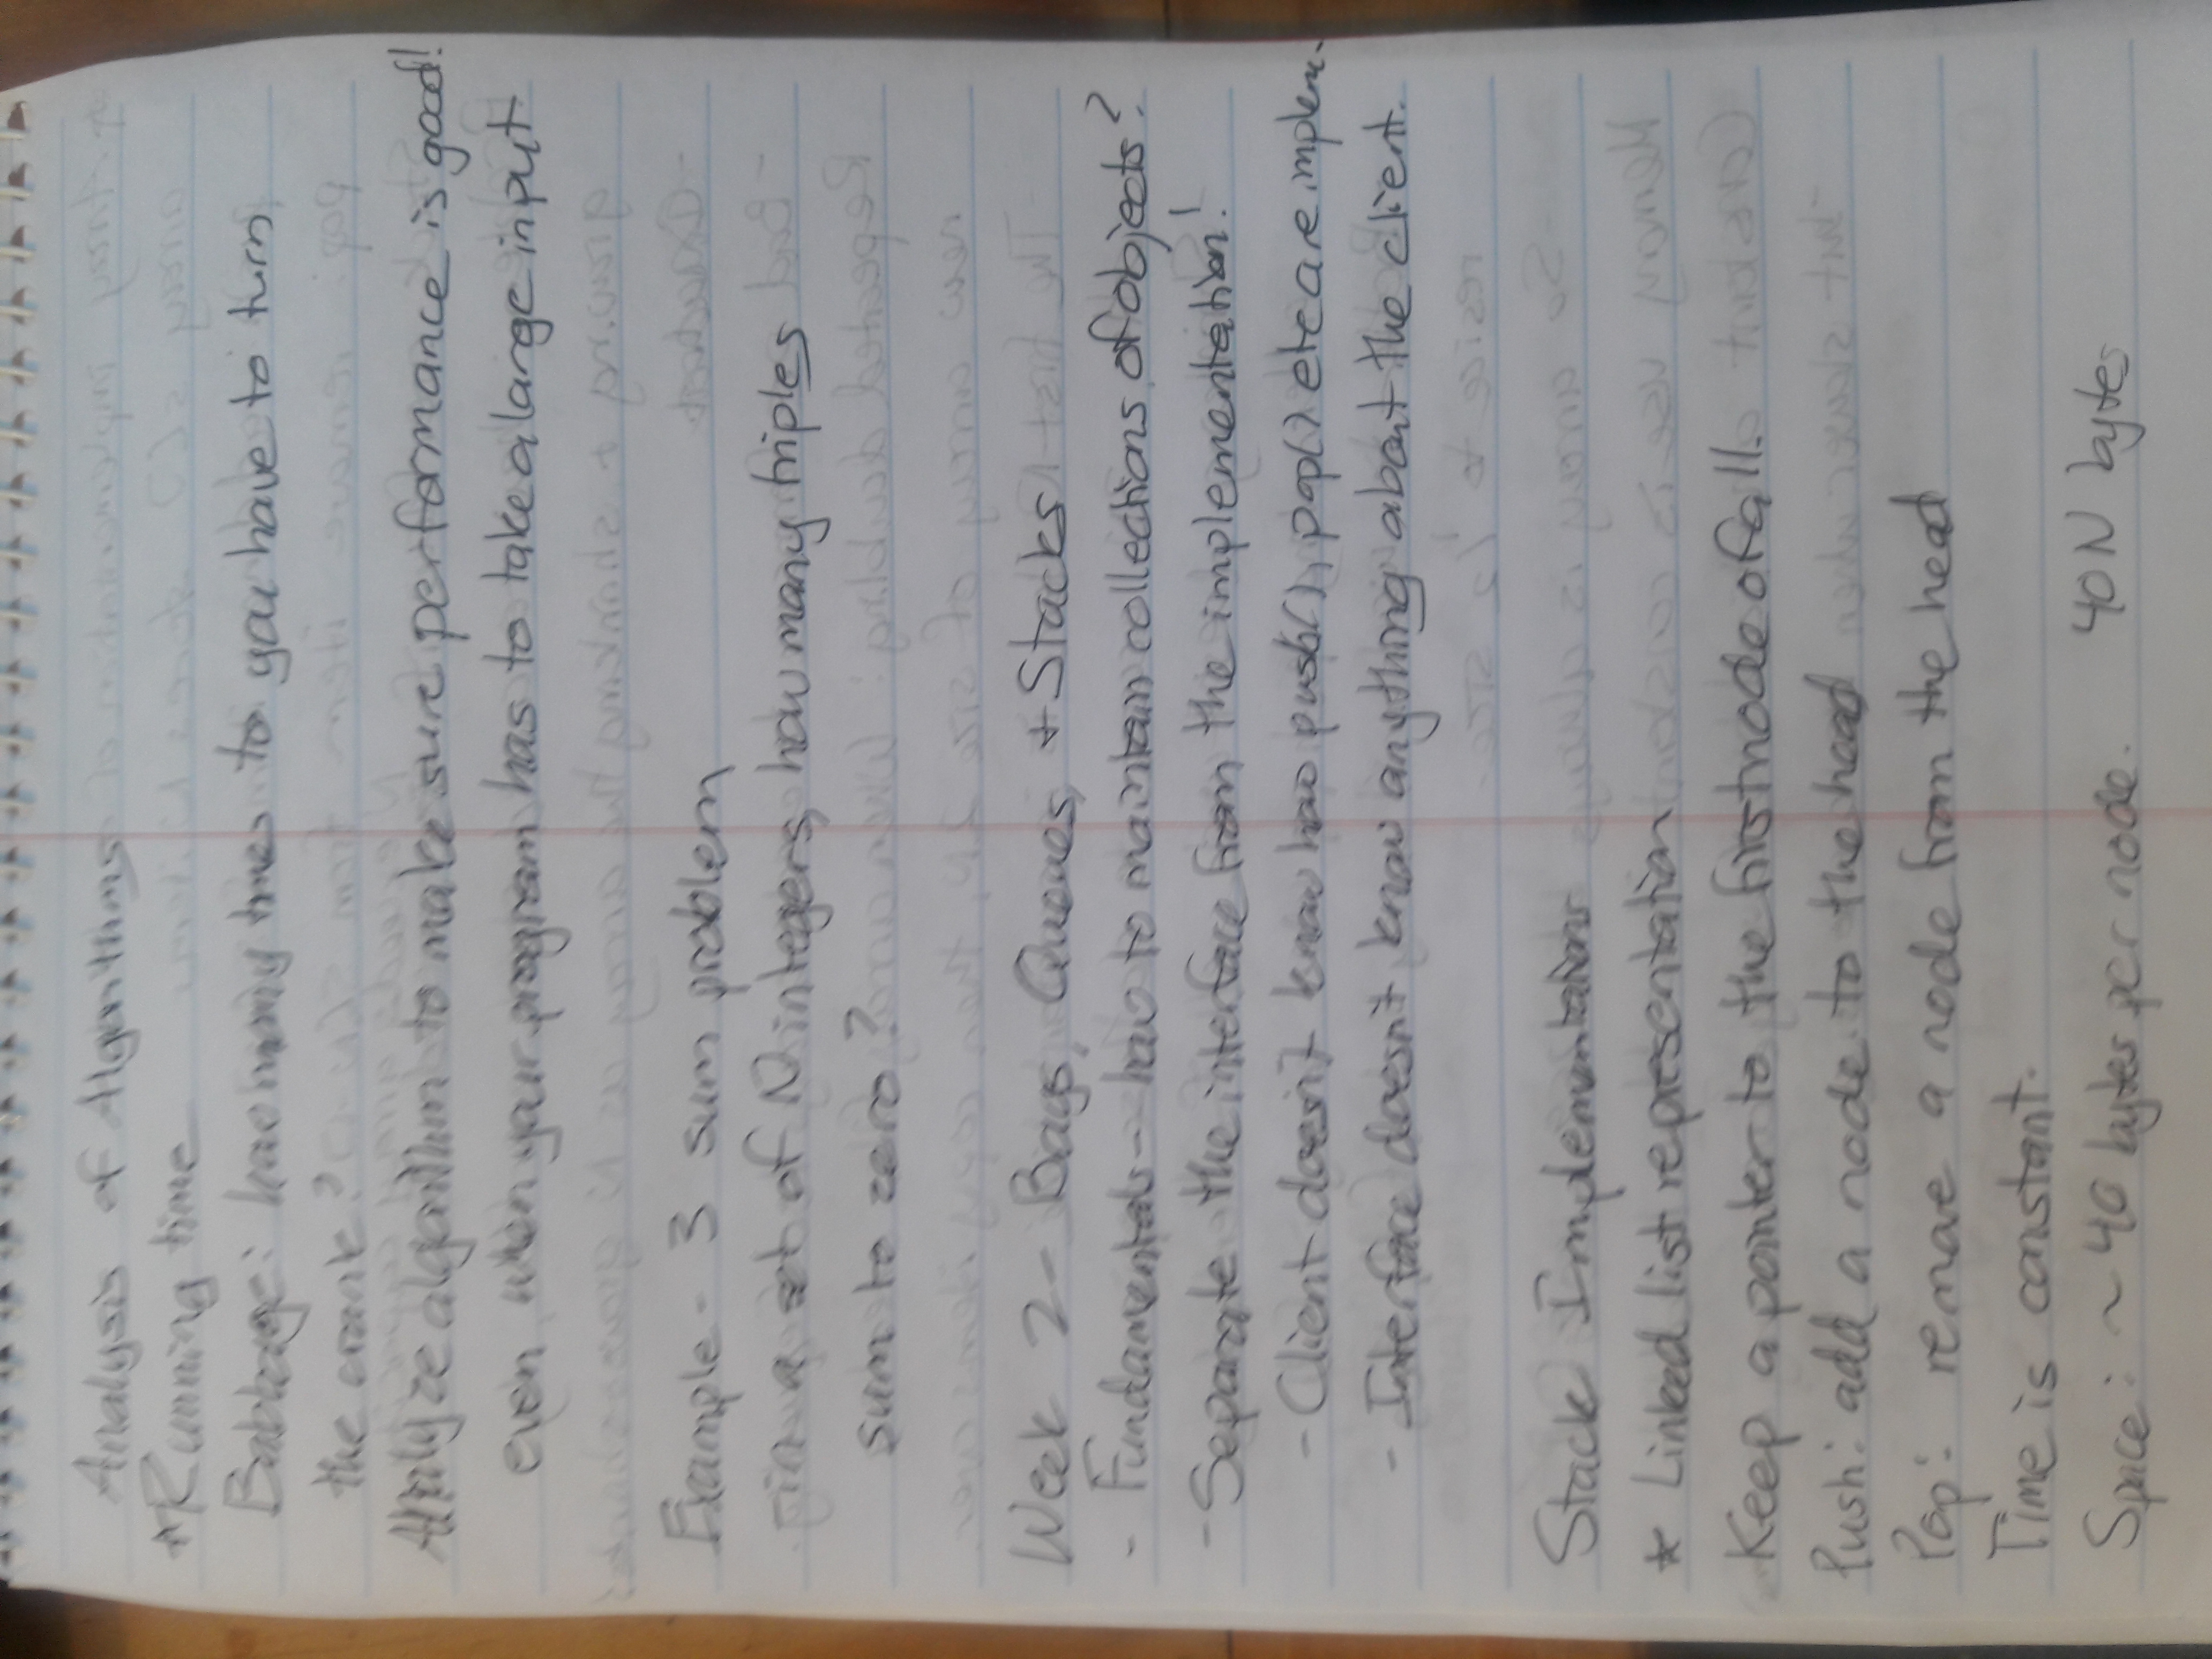 Analysis of Algorithms
* Running time
Babbage: how many times to you have to turn
the crank?
Analyze algorithm to make sure performance is good!
even when your program has to take a large input
Example - 3 sum problem
- in a set of N integers, how many triples
sum to zero?
Week 2 - Bags, Queues, + Stacks
- Fundamentals - how to maintain collections of objects?
- Separate the interface from the implementation!
- Client doesn't know how push(), pop() etc are implem.
- Interface doesn't know anything about the client.
Stack Implementations
* Linked list representation
Keep a pointer to the first node of all.
Push: add a node to the head
Pop: remove a node from the head
Time is constant.
Space: ~ 40 bytes per node. 40N bytes